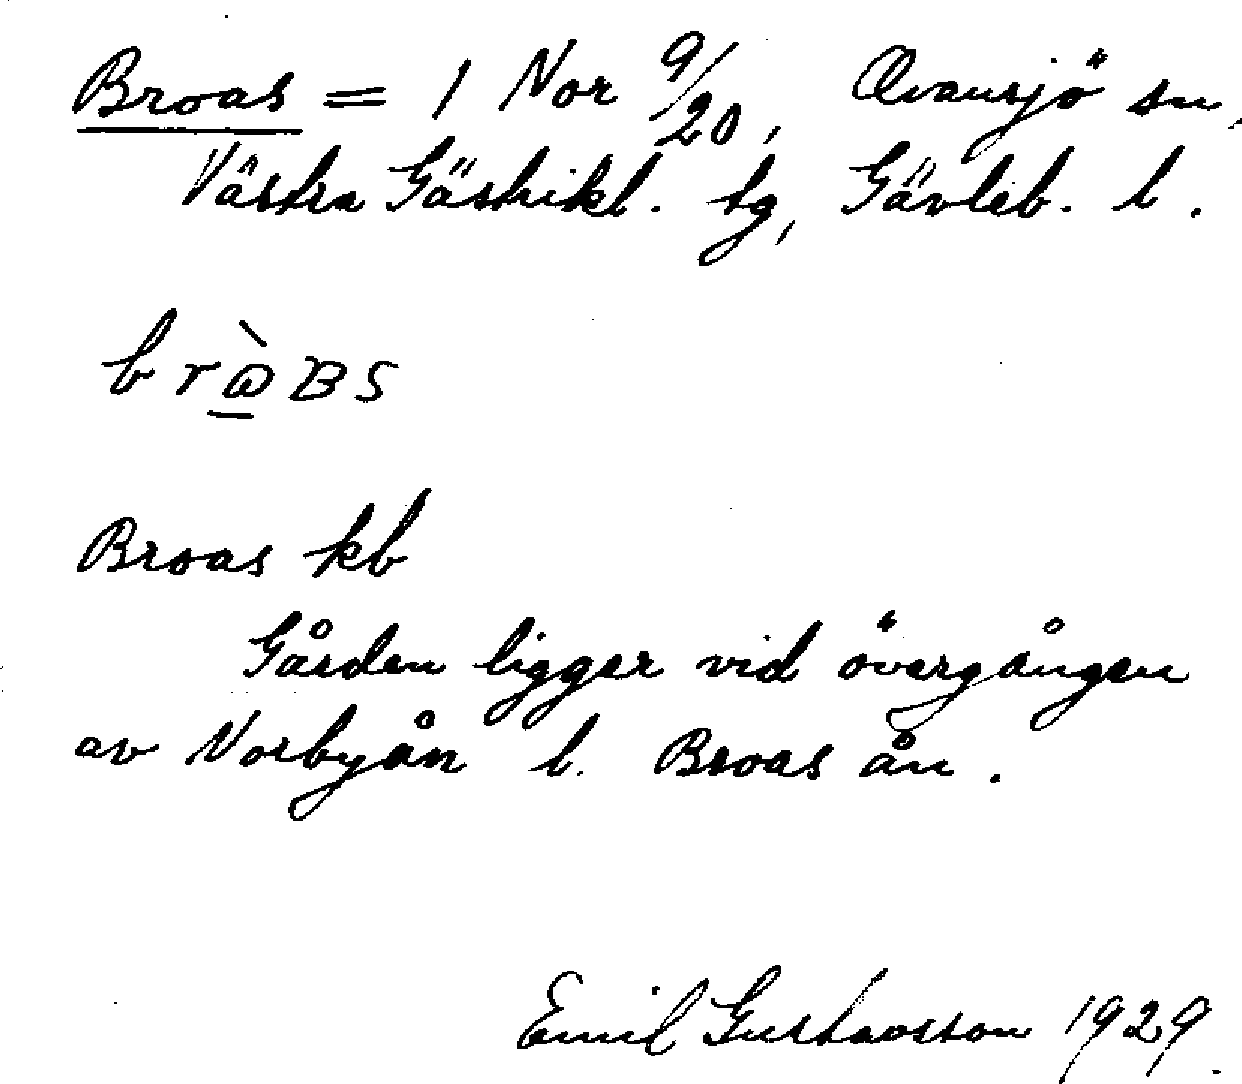 Broas = 1 Nor 9/20, Ovansjö sn,
Västra Gästrikl. tg, Gävleb. l.
Broas kb
Gården ligger vid övergången
av Norbyån l. Broas ån.
Emil Gustavsson 1929.